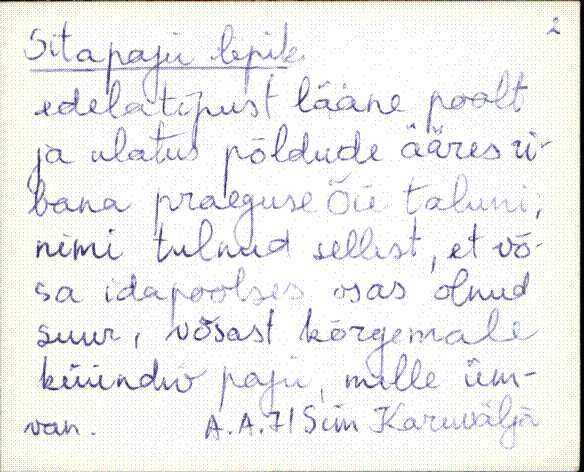 2
Sitapaju lepik
edelatipust lääne poolt
ja ulatus põldude ääres ri-
bana praeguse Õie taluni,
nimi tulnud sellest, et võ-
sa idapoolses osas olnud
suur, võsast kõrgemale
küündiv paju, mille üm-
A.A. 71 Siim Karuvälja